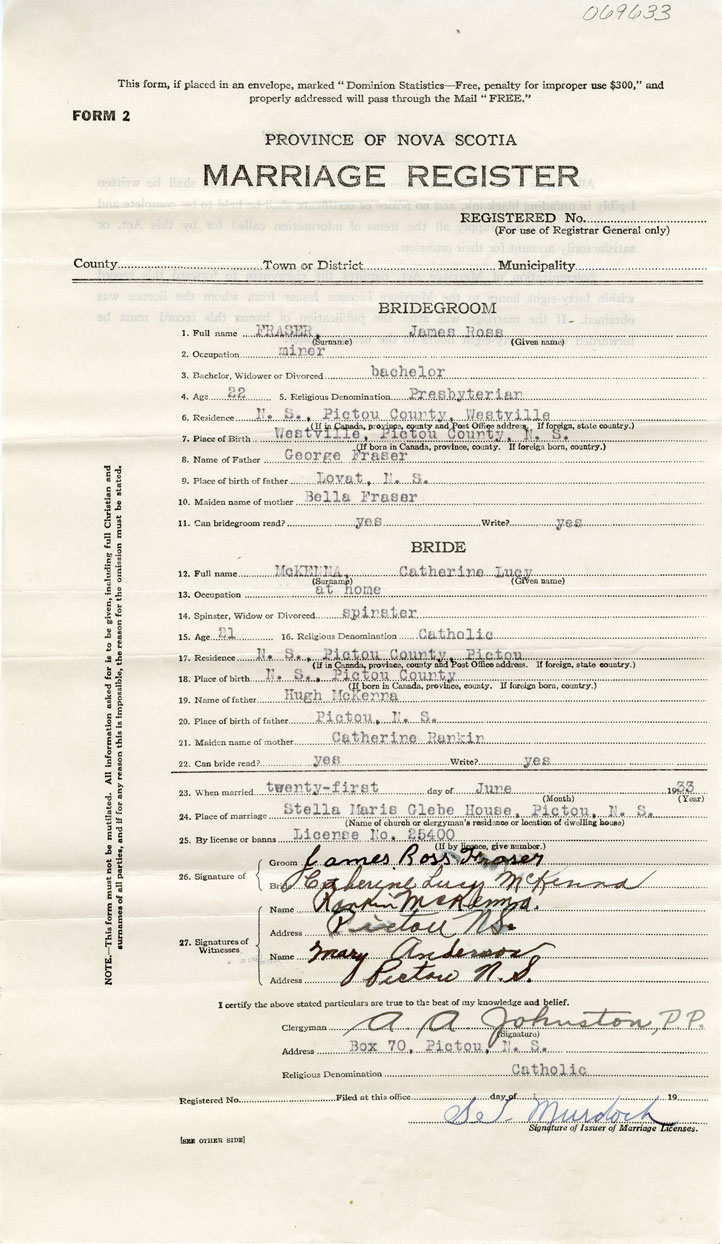 069633
This form, if placed in an envelope, marked "Dominion Statistics—Free, penalty for improper use $300," and
properly addressed will pass through the Mail "FREE."
FORM 2
PROVINCE OF NOVA SCOTIA
MARRIAGE REGISTER
REGISTERED No.
(For use of Registrar General only)
County Town or District Municipality
BRIDEGROOM
1. Full name FRASER, James Ross
(Surname) (Given name)
2. Occupation miner
3. Bachelor, Widower or Divorced bachelor
4. Age 22 5. Religious Denomination Presbyterian
6. Residence N. S., Pictou County, Westville
(If in Canada, province, county and Post Office address. If foreign, state country.)
7. Place of Birth Westville, Pictou County, N. S.
(If born in Canada, province, county. If foreign born, country.)
8. Name of Father George Fraser
9. Place of birth of father Lovat, N. S.
10. Maiden name of mother Bella Fraser
11. Can bridegroom read? yes Write? yes
BRIDE
12. Full name McKENNA, Catherine Lucy
(Surname) (Given name)
13. Occupation at home
14. Spinster, Widow or Divorced spinster
15. Age 21 16. Religious Denomination Catholic
17. Residence N. S., Pictou County, Pictou
(If in Canada, province, county and Post Office address. If foreign, state country.)
18. Place of birth N. S., Pictou County
(If born in Canada, province, county. If foreign born, country.)
19. Name of father Hugh McKenna
20. Place of birth of father Pictou, N. S.
21. Maiden name of mother Catherine Rankin
22. Can bride read? yes Write? yes
23. When married twenty-first day of June 1933
(Month) (Year)
24. Place of marriage Stella Maris Glebe House, Pictou, N. S.
(Name of church or clergyman's residence or location of dwelling house)
25. By license or banns License No. 25400
(If by licence, give number.)
26. Signature of
Groom James Ross Fraser
Bride Catherine Lucy McKenna
27. Signatures of Witnesses
Name Rankin McKenna.
Address Pictou N.S.
Name Mary Anderson
Address Pictou N.S.
I certify the above stated particulars are true to the best of my knowledge and belief.
Clergyman A A Johnston, P.P.
(Signature)
Address Box 70, Pictou, N. S.
Religious Denomination Catholic
Registered No. Filed at this office day of 19
S. T. Murdoch
Signature of Issuer of Marriage Licenses.
[SEE OTHER SIDE]
NOTE.—This form must not be mutilated. All information asked for is to be given, including full Christian and
surnames of all parties, and if for any reason this is impossible, the reason for the omission must be stated.